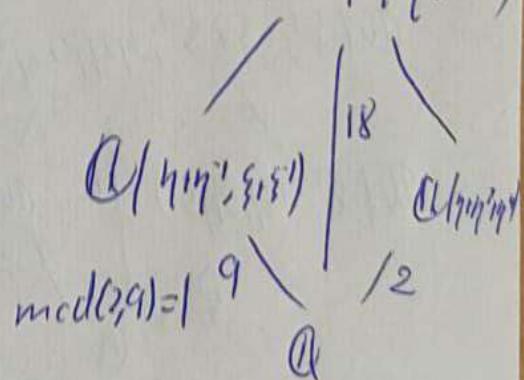 18
Q(η+η⁻¹, ξ+ξ⁻¹)
Q(η+η²+η⁴
mcd(2,9)=1 9 /2
Q